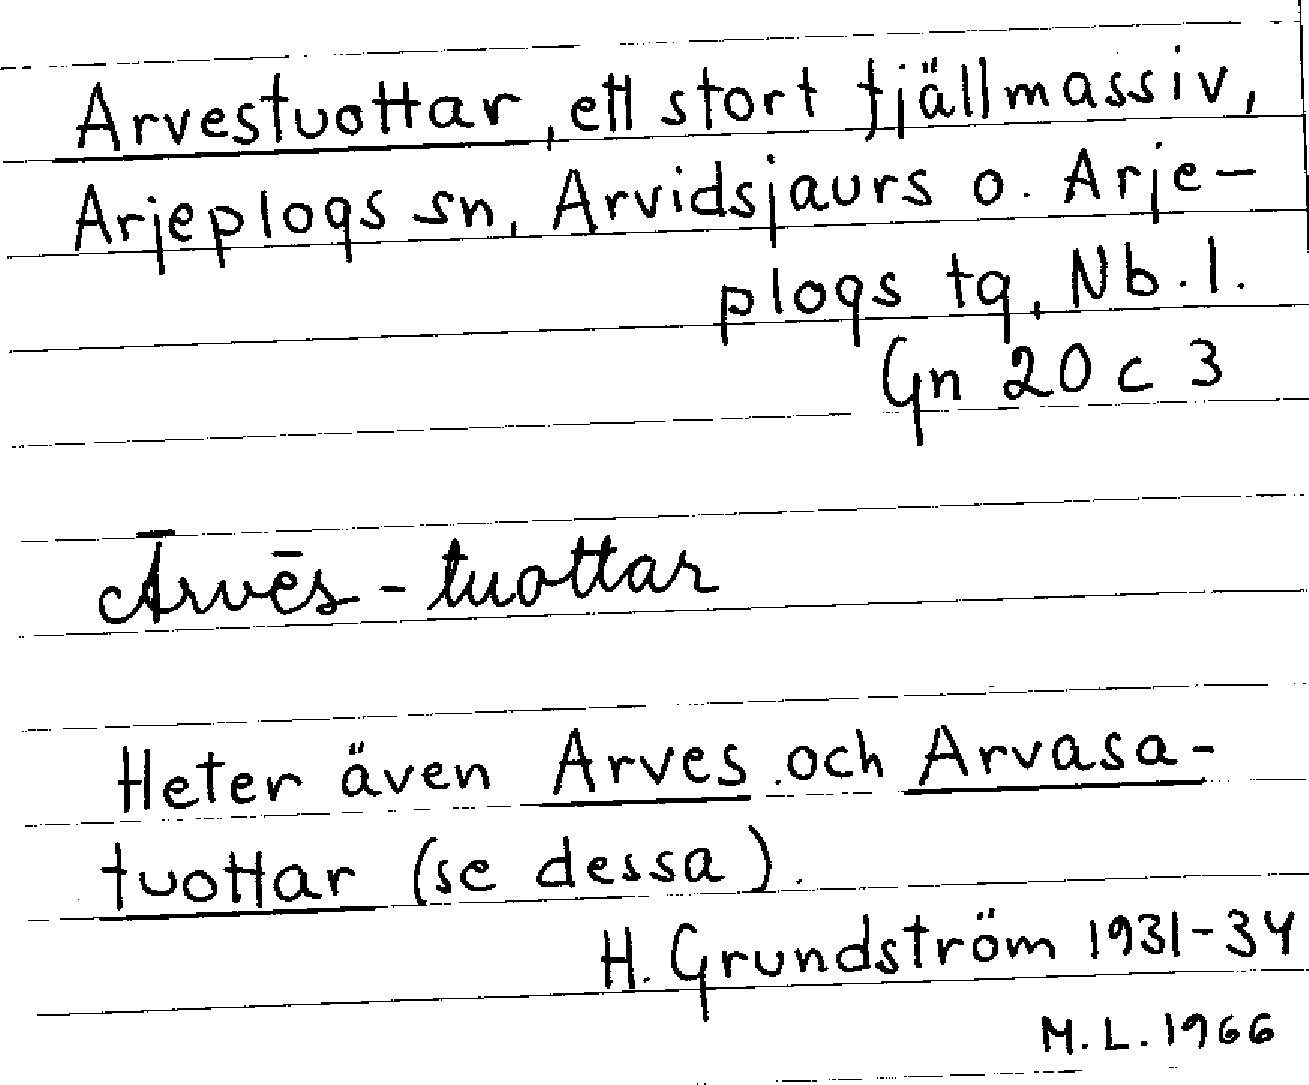 Arvestuottar, ett stort fjällmassiv,
Arjeplogs sn, Arvidsjaurs o. Arje-
plogs tg, Nb. l.
Gn 20 c 3
Ārvēs - tuottar
Heter även Arves och Arvasa-
tuottar (se dessa).
H. Grundström 1931-34
M. L. 1966